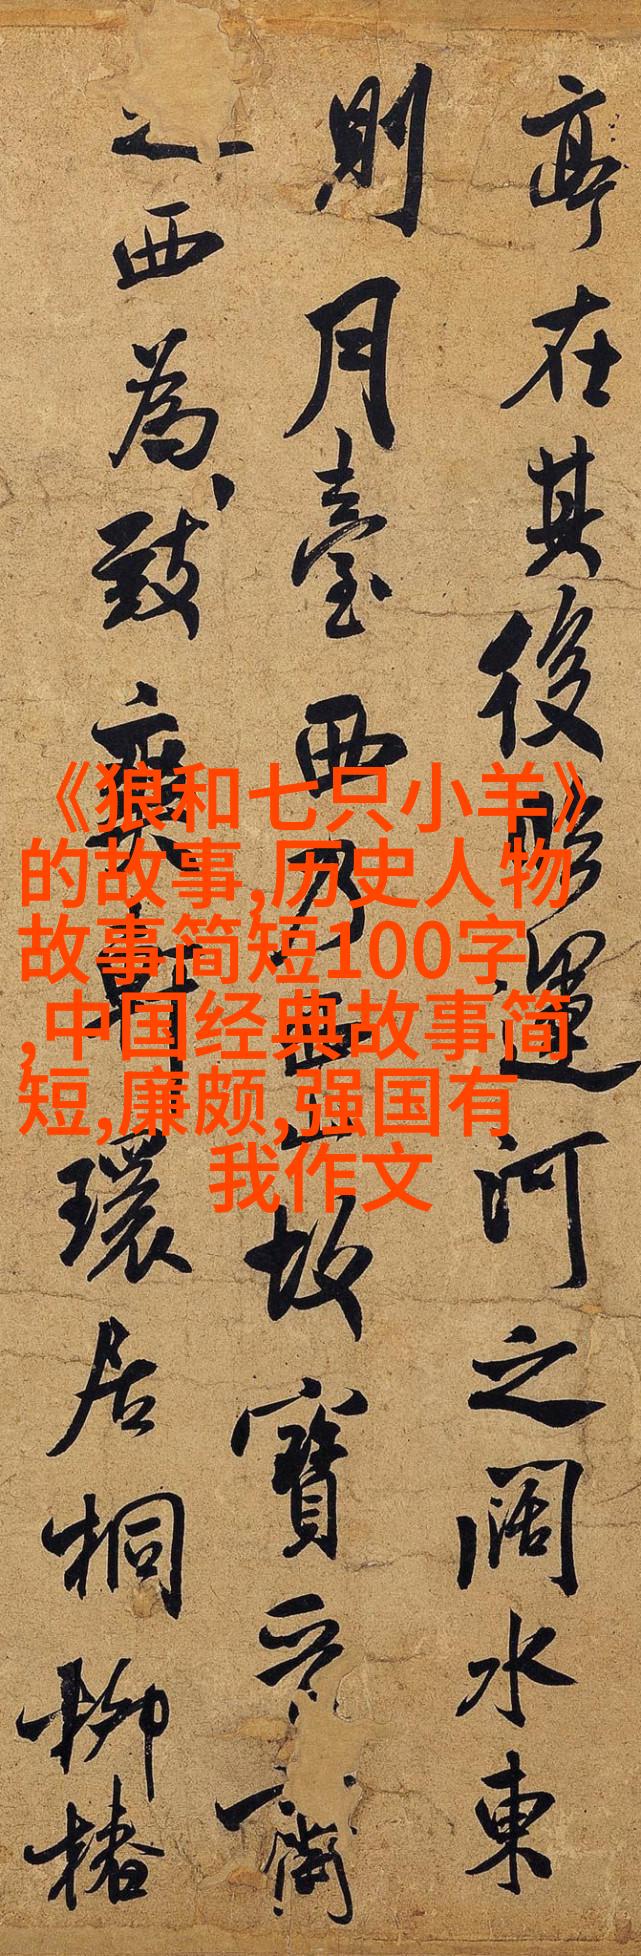 亭在其後臨運河之闊水東
則月臺西乃西山故寶晉齋
之西為致爽軒環居桐柳椿
《狼和七只小羊》
的故事,历史人物
故事简短100字
,中国经典故事简
短,廉颇,强国有
我作文